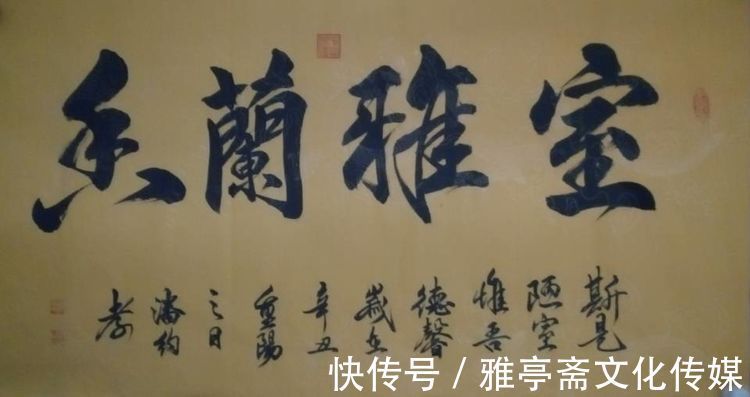 室雅蘭香
斯是
陋室
惟吾
德馨
歲在
辛丑
重陽
之日
潘約
快传号 / 雅亭斋文化传媒